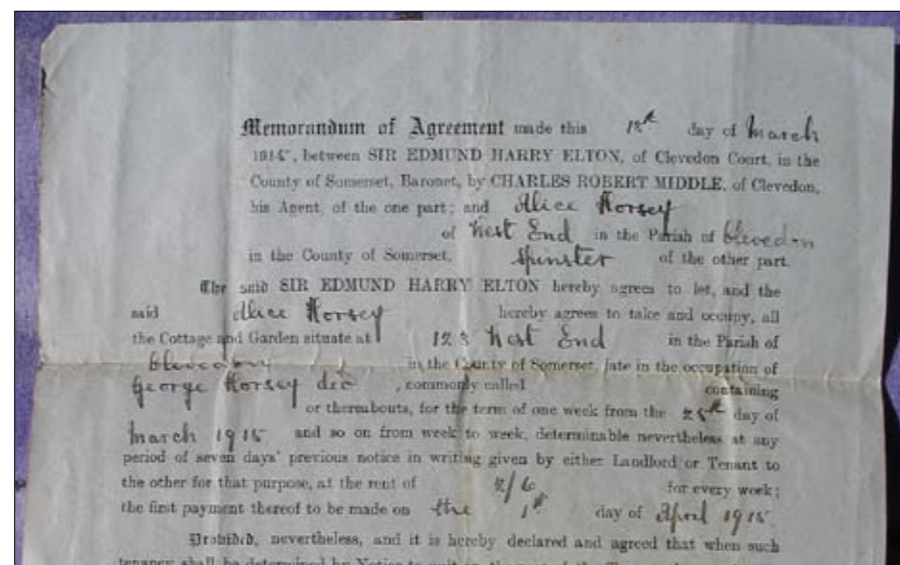 Memorandum of Agreement made this 18th day of March
1915, between SIR EDMUND HARRY ELTON, of Clevedon Court, in the
County of Somerset, Baronet, by CHARLES ROBERT MIDDLE, of Clevedon,
his Agent, of the one part; and Alice Horsey
of West End in the Parish of Clevedon
in the County of Somerset, Spinster of the other part.
The said SIR EDMUND HARRY ELTON hereby agrees to let, and the
said Alice Horsey hereby agrees to take and occupy, all
the Cottage and Garden situate at 123 West End in the Parish of
Clevedon in the County of Somerset, late in the occupation of
George Horsey dec , commonly called containing
or thereabouts, for the term of one week from the 25th day of
March 1915 and so on from week to week, determinable nevertheless at any
period of seven days' previous notice in writing given by either Landlord or Tenant to
the other for that purpose, at the rent of 2/6 for every week;
the first payment thereof to be made on the 1st day of April 1915.
Provided, nevertheless, and it is hereby declared and agreed that when such
tenancy shall be determined by Notice to quit